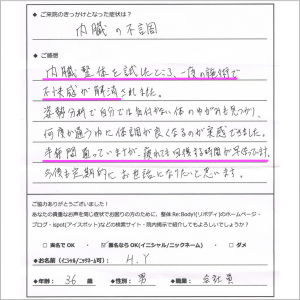 ◆ ご来院のきっかけとなった症状は?
内臓の不調
◆ ご感想
内臓整体を試したところ、一度の施術で
不快感が解消されました。
姿勢分析で自分では気付かない体のゆがみも見つかり、
何度か通う内に体調が良くなるのが実感できました。
半年間通っていますが、疲れても回復する時間が早くなっています。
今後も定期的にお世話になりたいと思います。
ご協力ありがとうございました!
あなたの貴重なお声を同じ症状でお困りの方のために、整体 Re:Body!(リボディ)のホームページ・
ブログ・ispot(アイスポット)などの検索サイト・院内掲示で紹介してもよろしいでしょうか?
・実名で OK ・匿名なら OK(イニシャル/ニックネーム) ・ダメ
◆お名前(イニシャル/ニックネーム可): H.Y
◆年齢: 36 歳 ◆性別: 男 ◆職業: 会社員